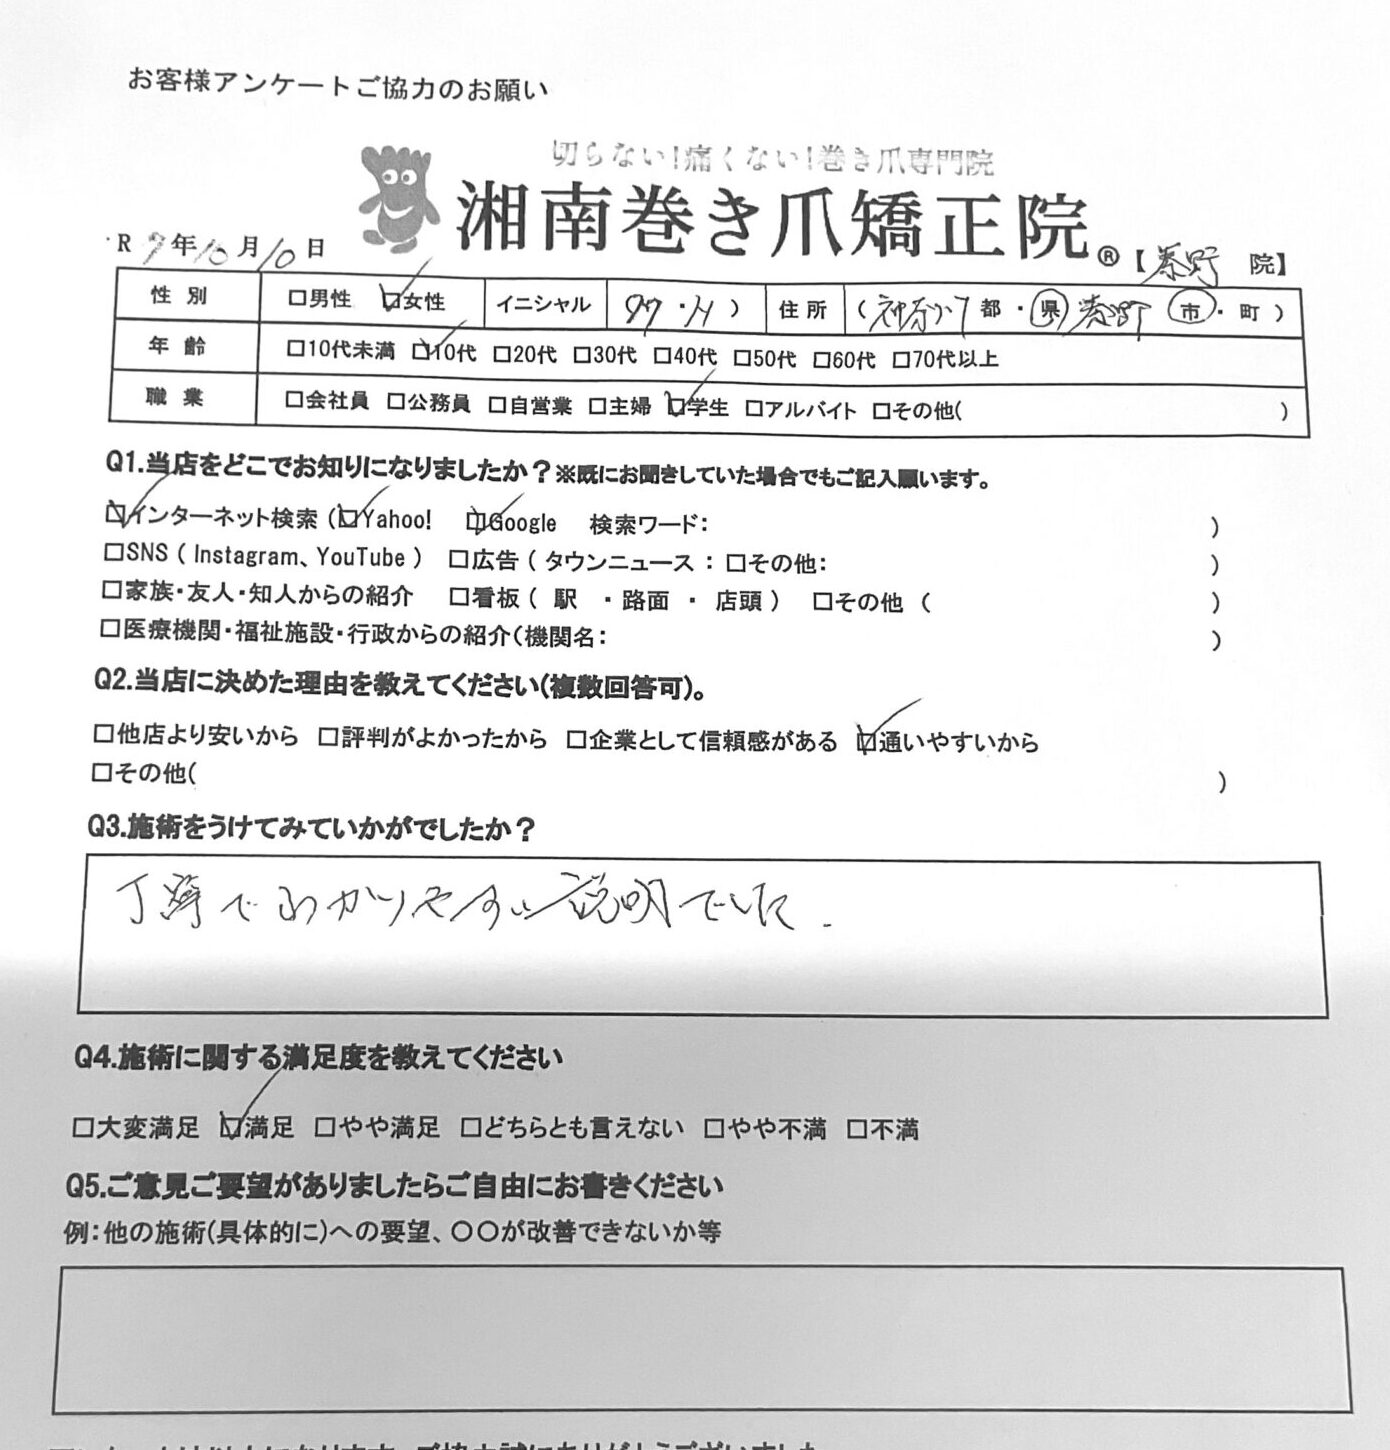 お客様アンケートご協力のお願い
切らない!痛くない!巻き爪専門院
湘南巻き爪矯正院®【秦野 院】
R 7年10月10日
性別 □男性 ☑女性 イニシャル M・H ) 住所 (神奈川 都・県 秦野 市・町 )
年齢 □10代未満 ☑10代 □20代 □30代 □40代 □50代 □60代 □70代以上
職業 □会社員 □公務員 □自営業 □主婦 ☑学生 □アルバイト □その他( )
Q1.当店をどこでお知りになりましたか?※既にお聞きしていた場合でもご記入願います。
☑インターネット検索(☑Yahoo! ☑Google 検索ワード: )
□SNS ( Instagram、YouTube ) □広告 ( タウンニュース : □その他: )
□家族・友人・知人からの紹介 □看板 ( 駅 ・路面 ・ 店頭 ) □その他 ( )
□医療機関・福祉施設・行政からの紹介(機関名: )
Q2.当店に決めた理由を教えてください(複数回答可)。
□他店より安いから □評判がよかったから □企業として信頼感がある ☑通いやすいから
□その他( )
Q3.施術をうけてみていかがでしたか?
丁寧でわかりやすい説明でした.
Q4.施術に関する満足度を教えてください
□大変満足 ☑満足 □やや満足 □どちらとも言えない □やや不満 □不満
Q5.ご意見ご要望がありましたらご自由にお書きください
例:他の施術(具体的に)への要望、〇〇が改善できないか等